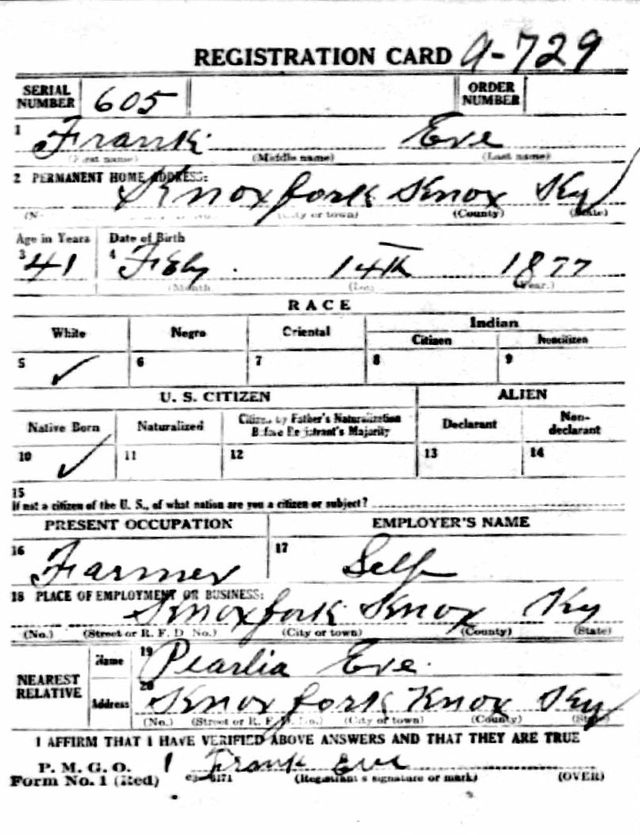 REGISTRATION CARD A-729
SERIAL NUMBER 605 ORDER NUMBER
1 Frank Eve
(First name) (Middle name) (Last name)
2 PERMANENT HOME ADDRESS:
Knoxfork Knox Ky
(City or town) (County) (State)
Age in Years Date of Birth
3 41 4 Feby. 14th 1877
(Month) (Day) (Year.)
RACE
White Negro Oriental Indian
Citizen Noncitizen
5 ✓ 6 7 8 9
U. S. CITIZEN ALIEN
Native Born Naturalized Citizen by Father's Naturalization Before Registrant's Majority Declarant Non-declarant
10 ✓ 11 12 13 14
15
If not a citizen of the U. S., of what nation are you a citizen or subject?
PRESENT OCCUPATION EMPLOYER'S NAME
16 Farmer 17 Self
18 PLACE OF EMPLOYMENT OR BUSINESS:
Knoxfork Knox Ky
(No.) (Street or R. F. D. No.) (City or town) (County) (State)
NEAREST RELATIVE Name 19 Pearlia Eve.
Address 20 Knoxfork Knox Ky
(No.) (Street or R. F. D. No.) (City or town) (County) (State)
I AFFIRM THAT I HAVE VERIFIED ABOVE ANSWERS AND THAT THEY ARE TRUE
P. M. G. O.
Form No. 1 (Red) Frank Eve
(Registrant's signature or mark) (OVER)